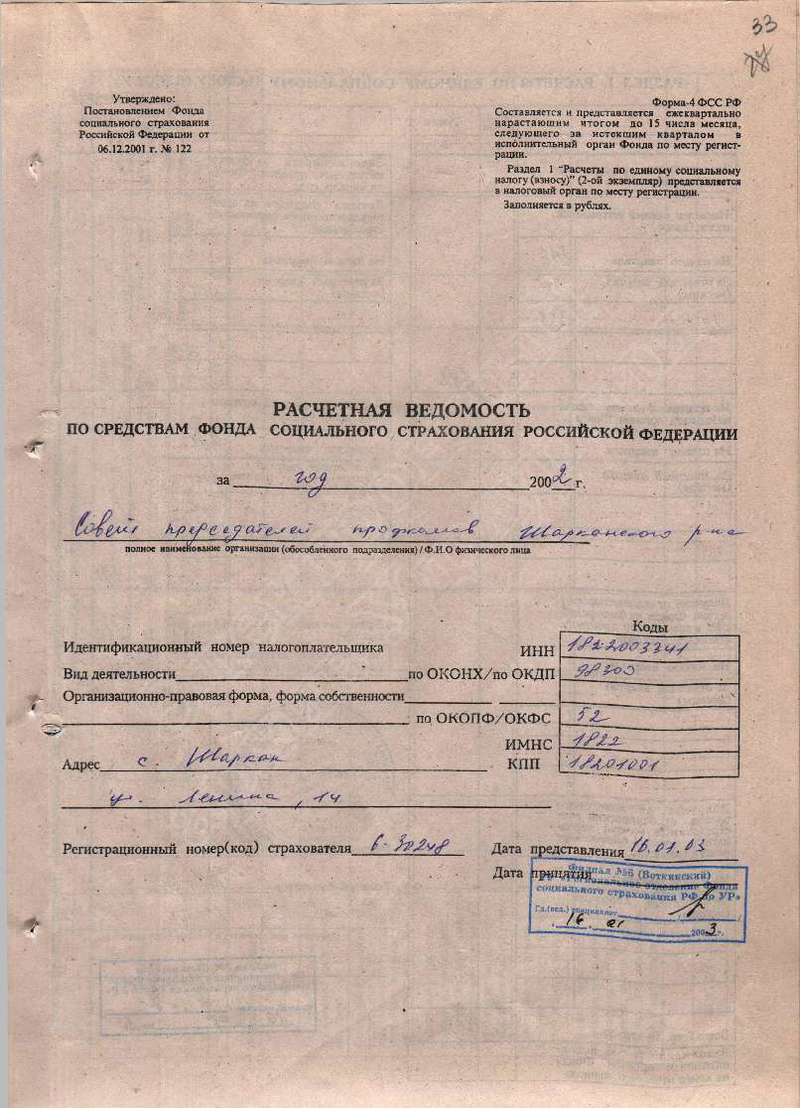 33
Утверждено:
Постановлением Фонда
социального страхования
Российской Федерации от
06.12.2001 г. № 122
Форма-4 ФСС РФ
Составляется и представляется ежеквартально
нарастающим итогом до 15 числа месяца,
следующего за истекшим кварталом в
исполнительный орган Фонда по месту регист-
рации.
Раздел 1 "Расчеты по единому социальному
налогу (взносу)" (2-ой экземпляр) представляется
в налоговый орган по месту регистрации.
Заполняется в рублях.
РАСЧЕТНАЯ ВЕДОМОСТЬ
ПО СРЕДСТВАМ ФОНДА СОЦИАЛЬНОГО СТРАХОВАНИЯ РОССИЙСКОЙ ФЕДЕРАЦИИ
за год 2002 г.
Совет председателей профкомов Шарканского р-на
полное наименование организации (обособленного подразделения) / Ф.И.О физического лица
Коды
Идентификационный номер налогоплательщика ИНН 1822003341
Вид деятельности по ОКОНХ/по ОКДП 98300
Организационно-правовая форма, форма собственности
по ОКОПФ/ОКФС 52
ИМНС 1822
Адрес с. Шаркан КПП 18201001
ул. Ленина, 14
Регистрационный номер(код) страхователя 6-30248 Дата представления 16.01.03
Дата принятия
Филиал №6 (Воткинский)
социального страхования РФ по УР»
16 01 2003 г.